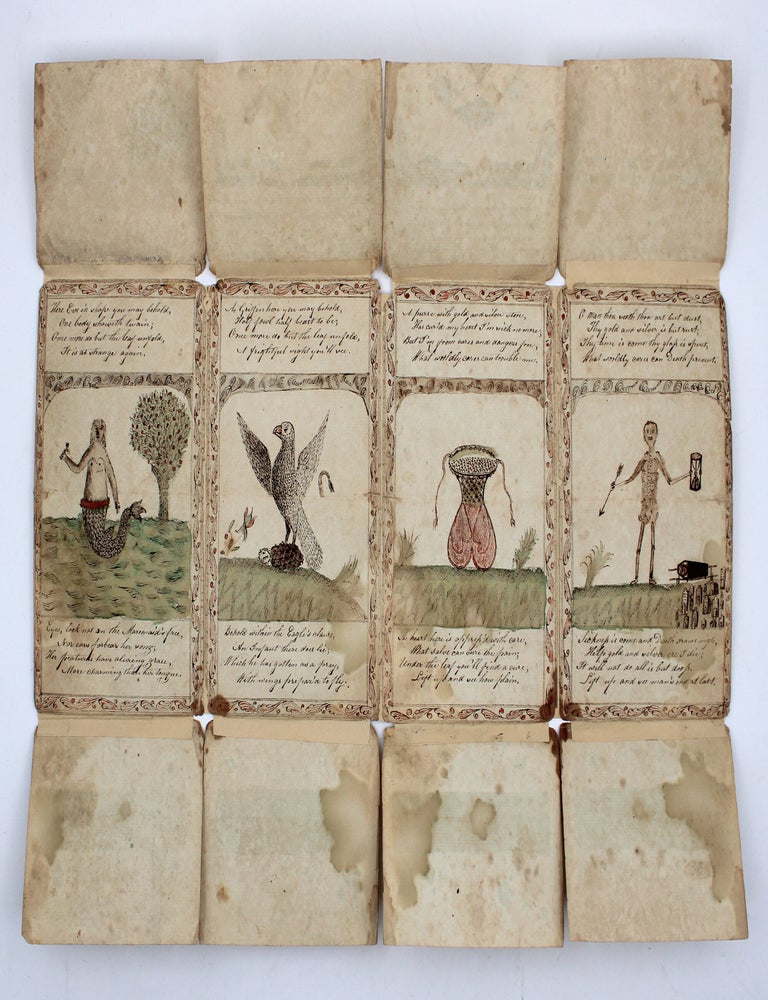 Here Eve in shape you may behold,
One body showeth twain;
Once more do but the leaf unfold,
It is as strange again.
Eyes, look not on the Maremaid's face,
Nor ears her song;
Her features have aluring grace,
More charming than her tongue.
A Griffen here you may behold,
Half fowl half beast to be;
Once more do but the leaf unfold,
A frightful sight you'll see.
Behold within the Eagle's claws,
An Infant there doe lie;
Which he has gotten as a prey,
With wings prepar'd to fly.
A purse with gold, and silver store,
my heart I'm sick no more;
But I'm from cares and dangers free,
What worldly cares can trouble me.
A heart here is opprep'd with care,
What salve can cure the pain;
Under the leaf you'll find a cure,
Left up and see how plain.
O man thou seeth thou art but dust,
Thy gold and silver is but rust;
Thy time is come thy glass is spent,
What worldly cares can Death prevent.
Sickness is come and Death draws nigh,
Help gold and silver ere I die;
It will not do all is but drop,
Left up and see man's end at last.